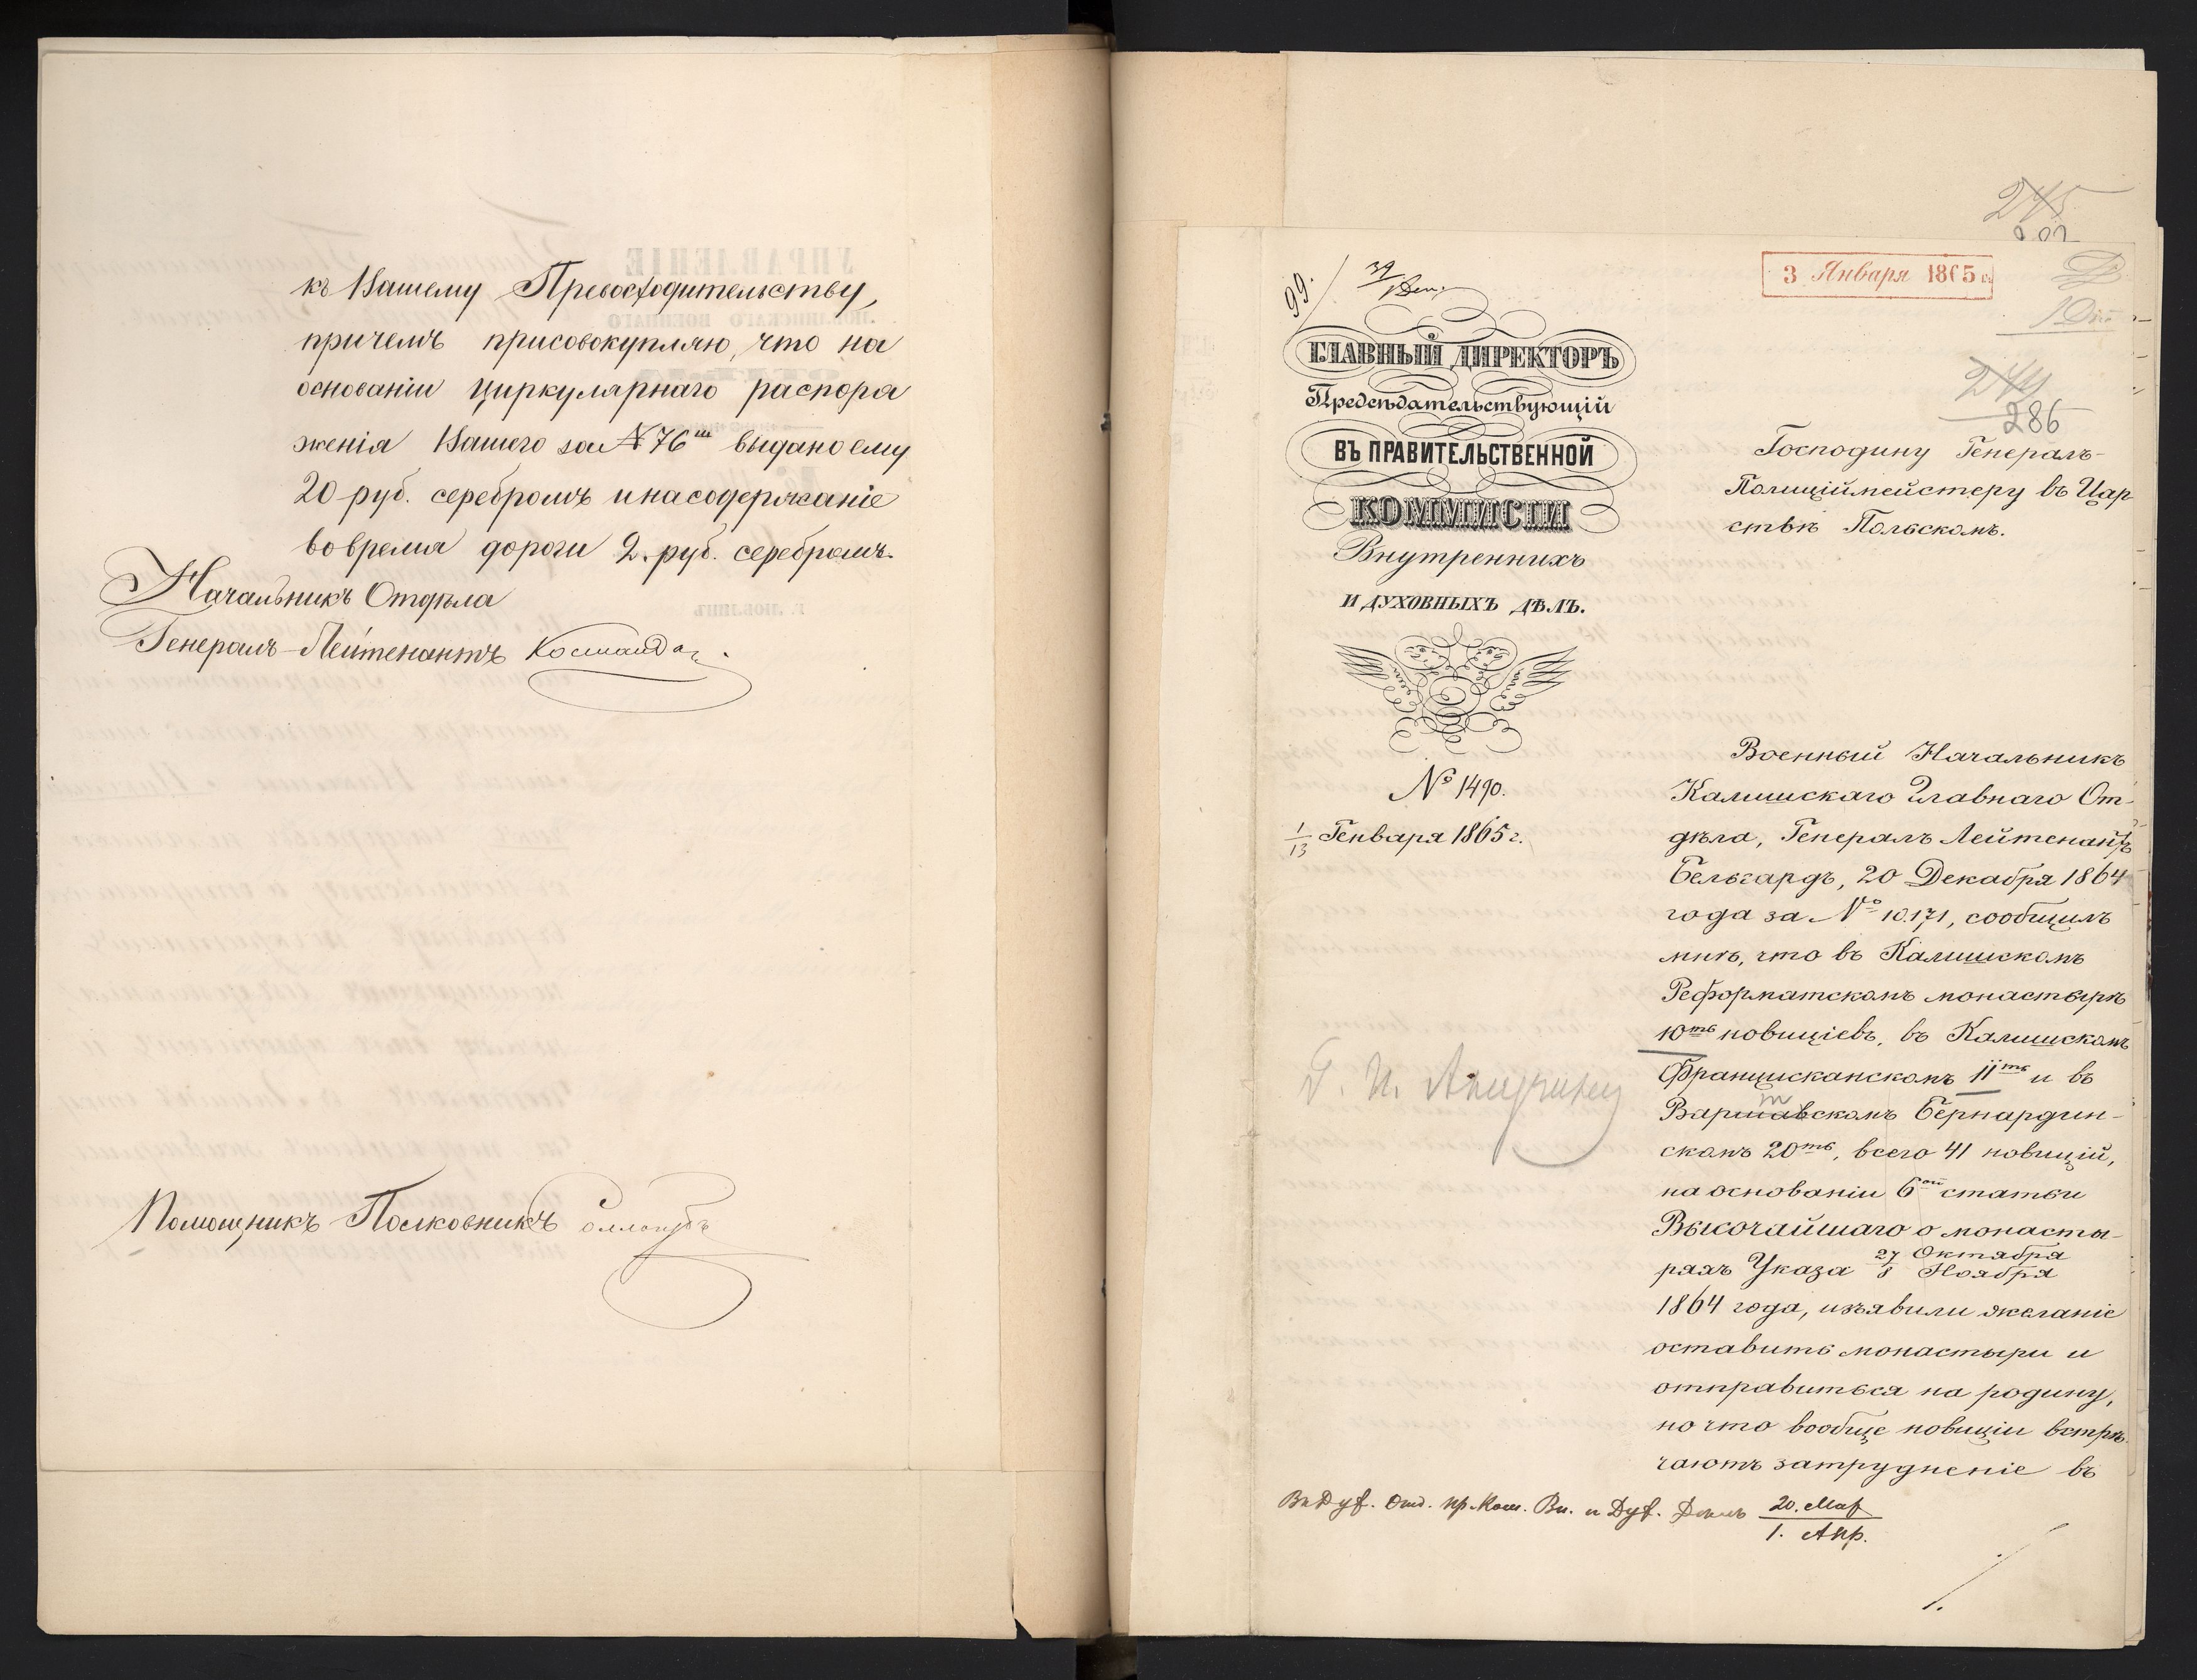 къ Вашему Превосходительству,
причемъ присовокупляю, что на
основаніи циркулярнаго распоря
женія Вашего за № 76ш выдано ему
20 руб. серебромъ и на содержаніе
во время дороги 2. руб. серебромъ.
Начальникъ Отдѣла
Генералъ-Лейтенантъ
Помощникъ Полковникъ
245
99.
3 Января 1865 г.
ГЛАВНЫЙ ДИРЕКТОРЪ
Предсѣдательствующій
ВЪ ПРАВИТЕЛЬСТВЕННОЙ
КОММИСІИ
Внутреннихъ
И ДУХОВНЫХЪ ДѢЛЪ.
№ 1490.
1/13 Генваря 1865 г.
244
286
Господину Генералъ-
Полиціймейстеру въ Цар
ствѣ Польскомъ.
Военный Начальникъ
Калишскаго Главнаго От-
дѣла, Генералъ Лейтенантъ
Бельгардъ, 20 Декабря 1864
года за № 10.171, сообщилъ
мнѣ, что въ Калишскомъ
Реформатскомъ монастырѣ
10ть новиціевъ, въ Калишскомъ
Францисканскомъ 11ть и въ
Варшавскомъ Бернардин-
скомъ 20ть, всего 41 новицій,
на основаніи 6ой статьи
Высочайшаго о монасты-
ряхъ Указа 27 Октября / 8 Ноября
1864 года, изъявили желаніе
оставить монастыри и
отправиться на родину,
но что вообще новиціи встрѣ
чаютъ затрудненіе въ
Въ Дух. Отд. Пр. Ком. Вн. и Дух. Дѣлъ 20. Мар / 1. Апр.